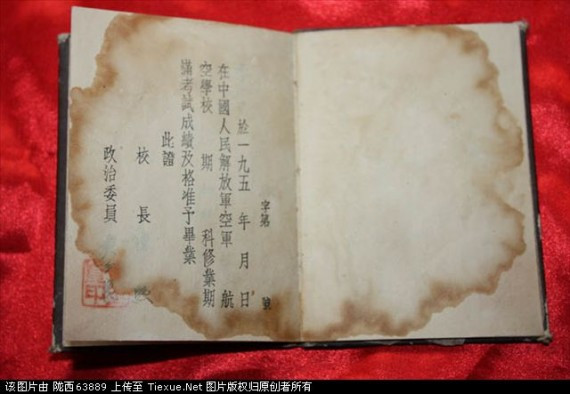 字第 號
於一九五 年 月 日
在中國人民解放軍空軍 航
空學校 期 科修業期
滿考試成績及格准予畢業
此證
校 長
政治委員
该图片由 陇西63889 上传至 Tiexue.Net 图片版权归原创者所有